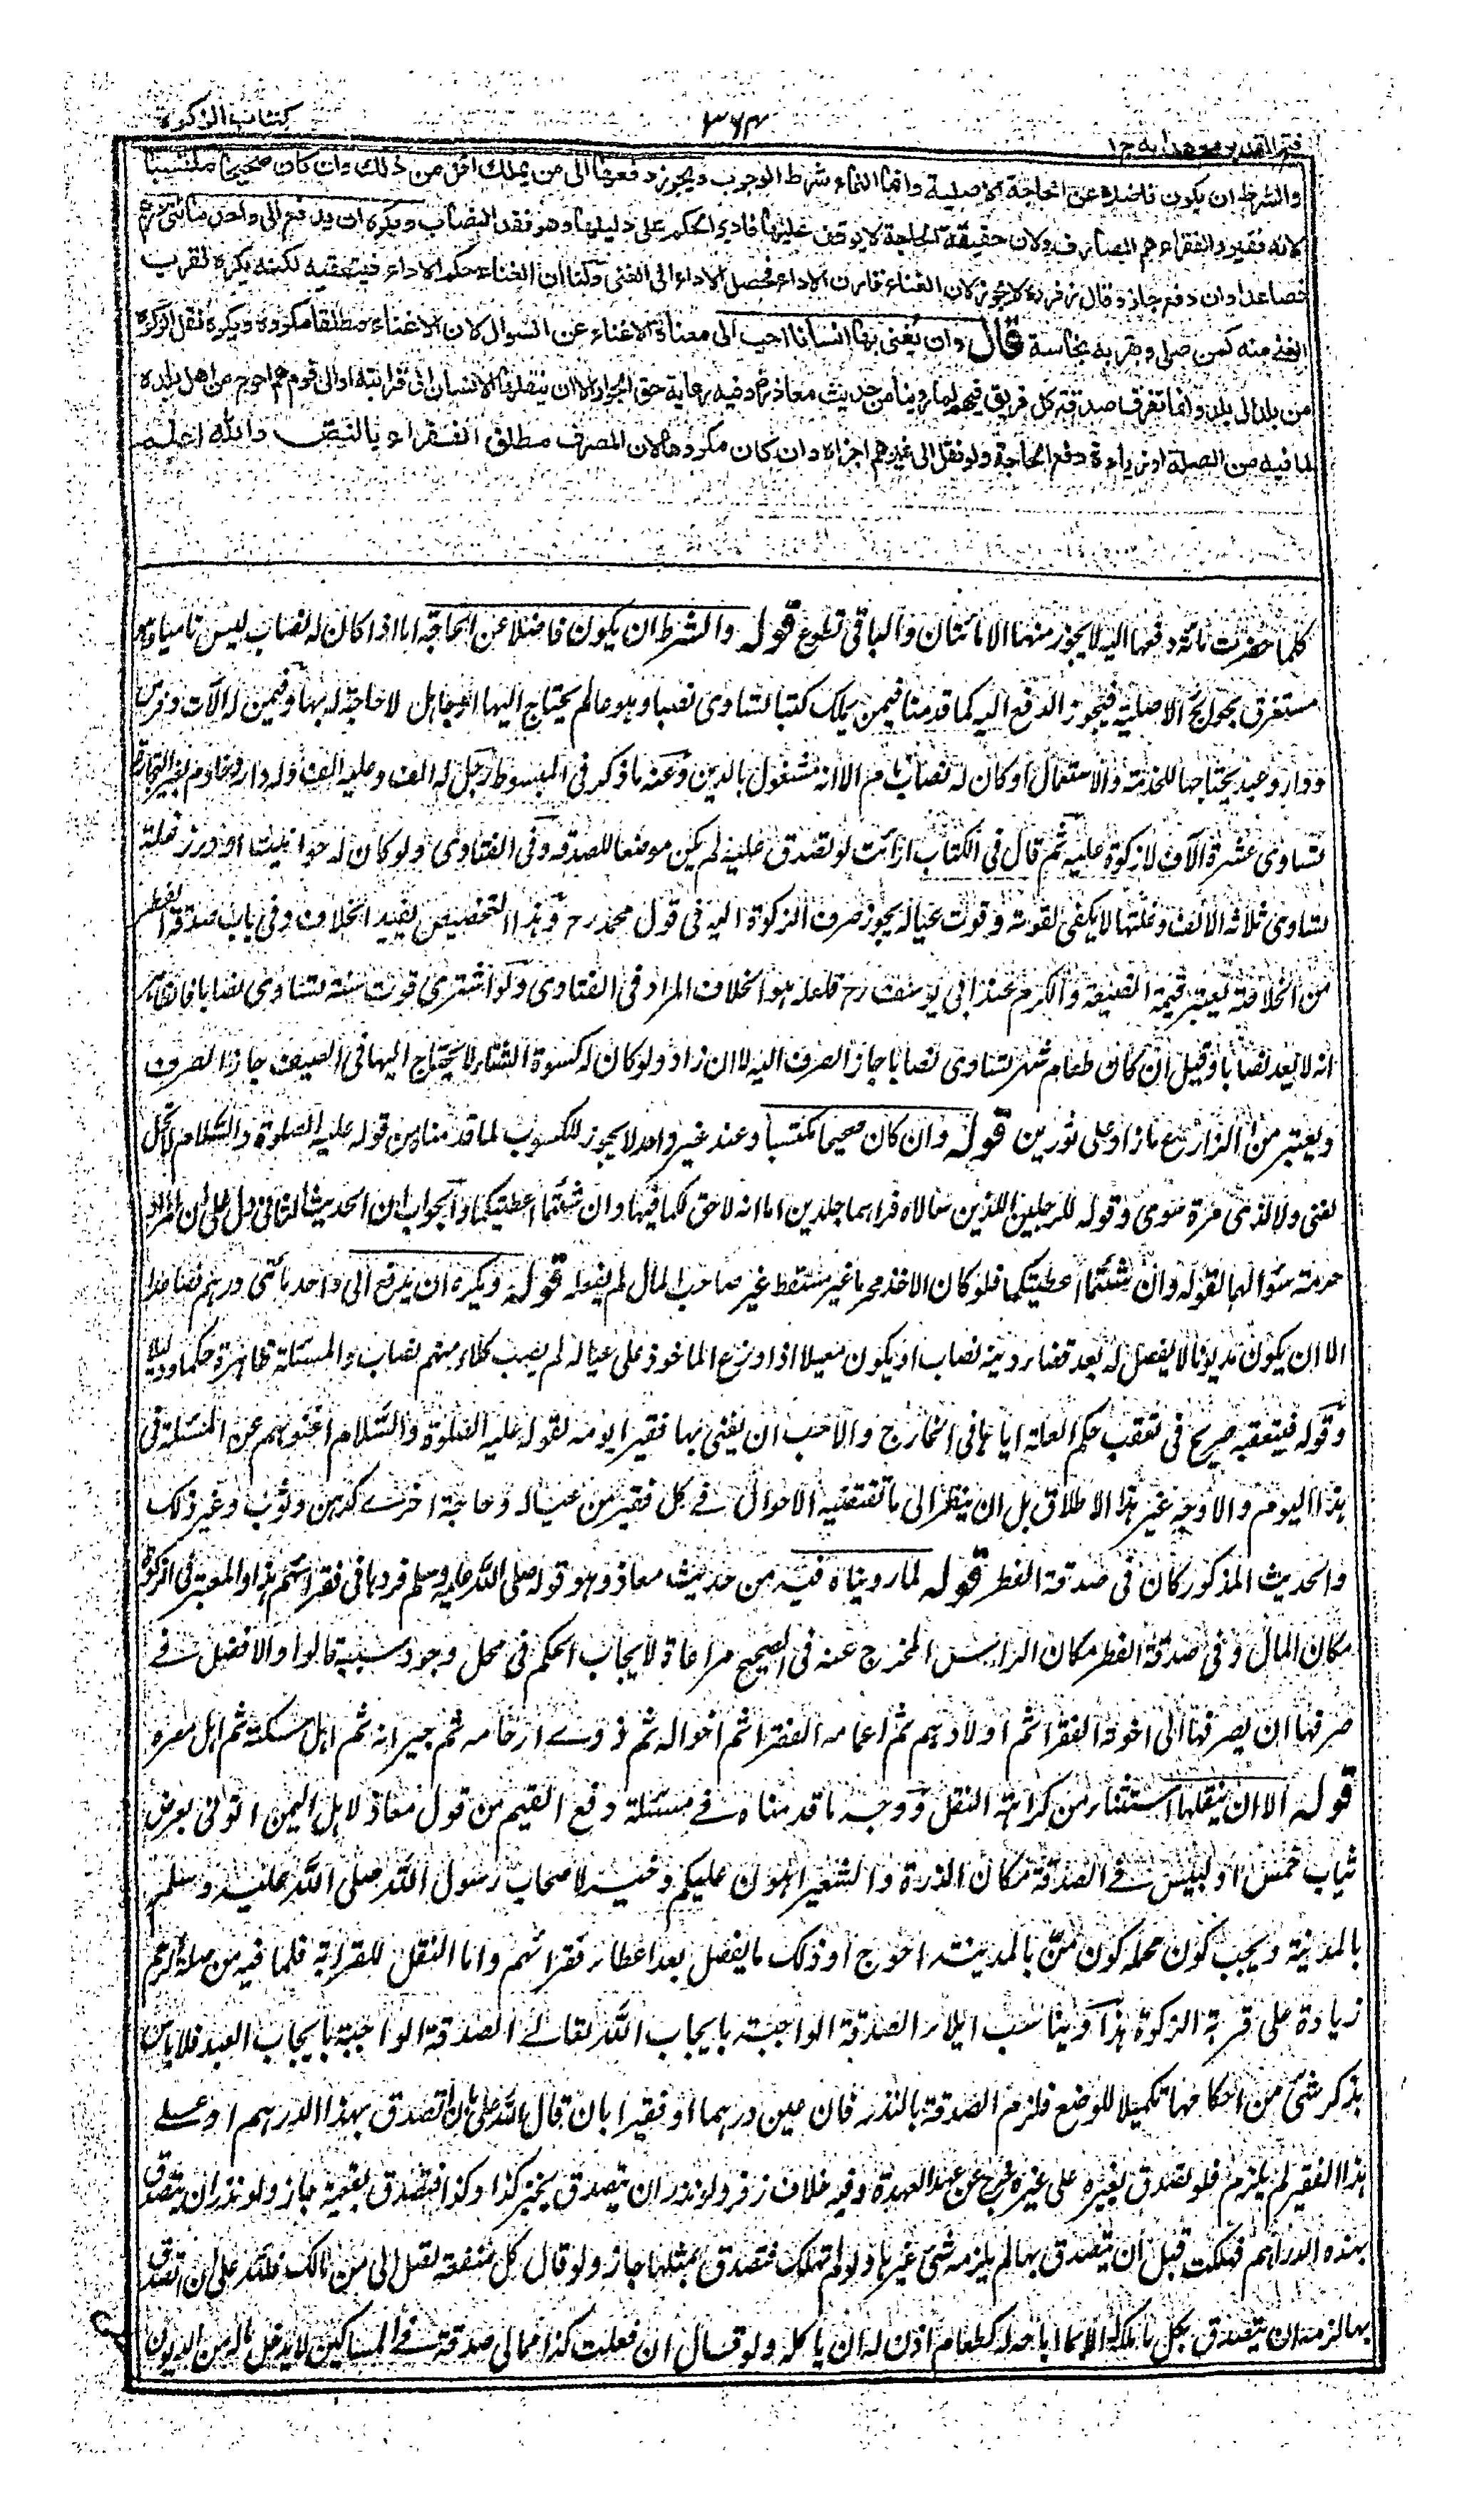 فتح القدير مع هداية ج ١
٣٦٣
كتاب الزكوة
والشرط ان يكون فاضلا عن الحاجة الاصلية وانما النماء شرط الوجوب ويجوز دفعها الى من يملك اقل من ذلك وان كان صحيحا مكتسبا
لانه فقير والفقراء هم المصارف ولان حقيقة الحاجة لا يوقف عليها فادير الحكم على دليلها وهو فقد النصاب ويكره ان يدفع الى واحد مائتى درهم
فصاعدا وان دفع جاز وقال زفر رح لا يجوز لان الغناء قارن الاداء فحصل الاداء الى الغنى ولنا ان الغناء حكم الاداء فيتعقبه لكنه يكره لقرب
الغنى منه كمن صلى وبقربه نجاسة قال وان يغنى بها انسانا احب الى معناه الاغناء عن السوال لان الاغناء مطلقا مكروه ويكره نقل الزكوة
من بلد الى بلد وانما تفرق صدقة كل فريق فيهم لما روينا من حديث معاذ رض وفيه رعاية حق الجوار الا ان ينقلها الانسان الى قرابته او الى قوم هم احوج من اهل بلده
لما فيه من الصلة او زيادة دفع الحاجة ولو نقل الى غيرهم اجزاه وان كان مكروها لان المصرف مطلق الفقراء بالنص والله اعلم
كلما حضرت مائة دفعها اليه لا يجوز منها الا مائتان والباقى تطوع قوله والشرط ان يكون فاضلا عن الحاجة اما اذا كان له نصاب ليس ناميا وهو
مستغرق بحوائجه الاصلية فيجوز الدفع اليه كما قدمنا فيمن يملك كتبا تساوى نصبا وهو عالم يحتاج اليها او جاهل لا حاجة له بها وفيمن له آلات وفرس
ودار وعبد يحتاجها للخدمة والاستعمال او كان له نصاب نام الا انه مشغول بالدين وعنه ما ذكر فى المبسوط رجل له الف وعليه الف وله دار وخادم لغير التجارة
تساوى عشرة آلاف لا زكوة عليه ثم قال فى الكتاب ارأيت لو تصدق عليه لم يكن موضعا للصدقة وفى الفتاوى ولو كان له حوانيت او دور غلة
تساوى ثلاثة الالف وغلتها لا يكفى لقوته وقوت عياله يجوز صرف الزكوة اليه فى قول محمد رح وهذا التخصيص يفيد الخلاف وفى باب صدقة الفطر
من الخلاصة تعتبر قيمة الضيعة والكرم عند ابى يوسف رح فلعله هو الخلاف المراد فى الفتاوى ولو اشترى قوت سنة تساوى نصابا فالظاهر
انه لا يعد نصابا وقيل ان كان طعام شهر تساوى نصابا جاز الصرف اليه لا ان زاد ولو كان له كسوة الشتاء لا يحتاج اليها فى الصيف جاز الصرف
ويعتبر من الزارع ما زاد على ثورين قوله وان كان صحيحا مكتسبا وعند غير واحد لا يجوز للكسوب لما قدمناه من قوله عليه الصلوة والسلام لا تحل
لغنى ولا لذى مرة سوى وقوله للرجلين اللذين سالاه فراهما جلدين اما انه لا حق لكما فيها وان شئتما اعطيتكما والجواب ان الحديث الثانى دل على ان المراد
حرمة سؤالهما لقوله وان شئتما اعطيتكما فلو كان الاخذ محرما غير مسقط عن صاحب المال لم يفعله قوله ويكره ان يدفع الى واحد مائتى درهم فصاعدا
الا ان يكون مديونا لا يفضل له بعد قضاء دينه نصاب او يكون معيلا اذا وزع الماخوذ على عياله لم يصب كلا منهم نصاب والمسئلة ظاهرة حكما ودليلا
وقوله فيتعقبه صريح فى تعقب حكم العلة اياها فى الخارج والاحب ان يغنى بها فقيرا يومه لقوله عليه الصلوة والسلام اغنوهم عن المسئلة فى
هذا اليوم والاوجه غير هذا الاطلاق بل ان ينظر الى ما تقتضيه الاحوال فے كل فقير من عياله وحاجة اخرے كدهن وثوب وغير ذلك
والحديث المذكور كان فى صدقة الفطر قوله لما رويناه فيه من حديث معاذ وهو قوله صلى الله عليه وسلم فردها فى فقرائهم هذا والمعتبر فى الزكوة
مكان المال وفى صدقة الفطر مكان الراس المخرج عنه فى الصحيح مراعاة لايجاب الحكم فى محل وجود سببه قالوا والافضل فے
صرفها ان يصرفها الى اخوته الفقرا ثم اولادهم ثم اعمامه الفقرا ثم اخواله ثم ذوے ارحامه ثم جيرانه ثم اهل سكنة ثم اهل مصره
قوله الا ان ينقلها استثناء من كراهة النقل ووجه ما قدمناه فے مسئلة دفع القيم من قول معاذ لاهل اليمن ائتونى بعرض
ثياب خميس او لبيس فے الصدقة مكان الذرة والشعير اهون عليكم وخير لاصحاب رسول الله صلى الله عليه وسلم
بالمدينة ويجب كون محمله كون من بالمدينة احوج او ذلك ما يفضل بعد اعطاء فقرائهم واما النقل للقرابة فلما فيه من صلة الرحم
زيادة على قربة الزكوة هذا ويناسب ايلاء الصدقة الواجبة بايجاب الله تعالے الصدقة الواجبة بايجاب العبد فلا باس
بذكر شئ من احكامها تكميلا للوضع فلزم الصدقة بالنذر فان عين درهما او فقيرا بان قال لله على ان اتصدق بهذا الدرهم او علے
هذا الفقير لم يلزم فلو تصدق بغيره على غيره خرج عن عهد العهدة وفيه خلاف زفر ولو نذر ان يتصدق بخبز كذا وكذا فتصدق بقيمته جاز ولو نذر ان يتصدق
بهذه الدراهم فهلكت قبل ان يتصدق بها لم يلزمه شئ غيرها ولو لم تهلك فتصدق بمثلها جاز ولو قال كل منفعة تصل الى من مالك فلله على ان اتصدق
بها لزمه ان يتصدق بكل ما ملكه لا بما اباحه له كطعام اذن له ان ياكله ولو قال ان فعلت كذا فمالى صدقة فے المساكين لا يدخل ماله من الديون